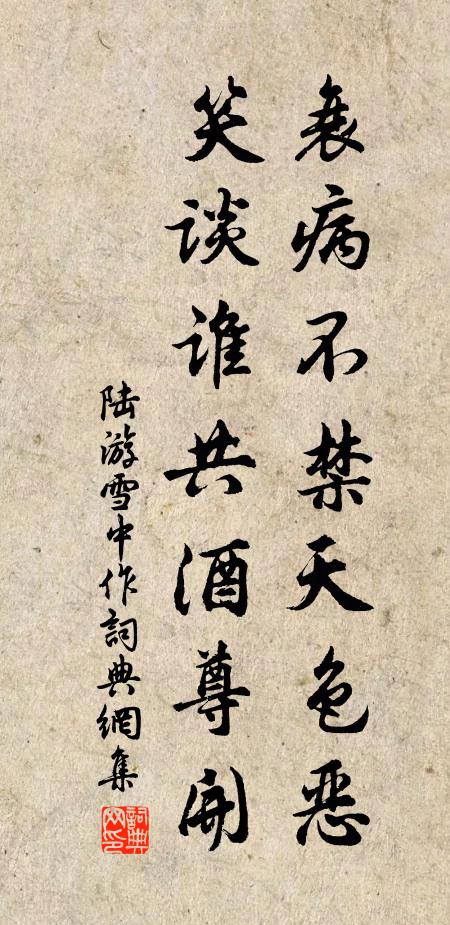 衰病不禁天色恶
笑谈谁共酒尊开
陆游雪中作詞典網集
詞典网印